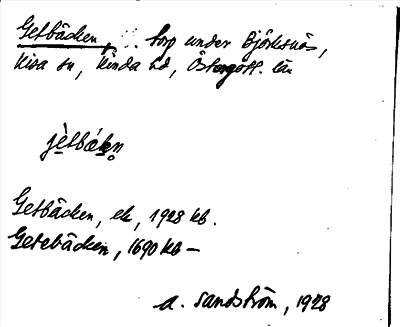 Getbäcken, torp under Björksnäs,
Kisa sn, Kinda hd, Östergötl. län
jètbákn̥
Getbäcken, ek, 1928 kb.
Getebäcken, 1690 kb –
A. Sandström, 1928